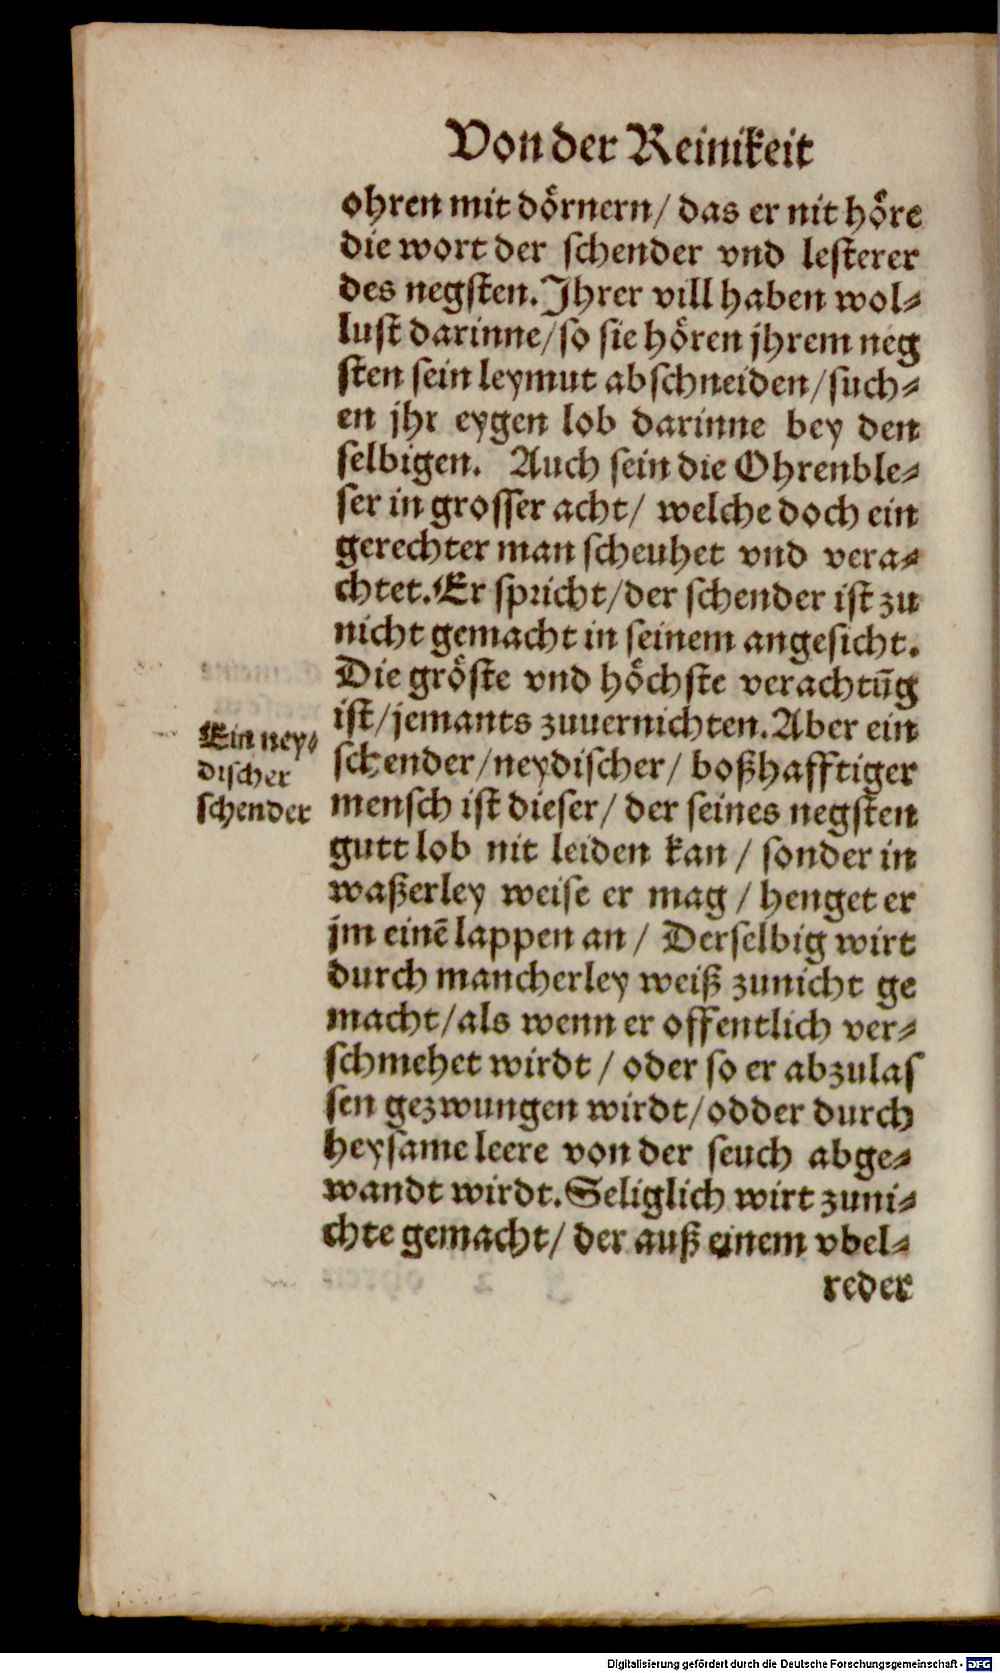 Von der Reinikeit
ohren mit dörnern/ das er nit höre
die wort der schender vnd lesterer
des negsten. Jhrer vill haben wol⸗
lust darinne/so sie hören jhrem neg
sten sein leymut abschneiden/such⸗
en jhr eygen lob darinne bey den
selbigen. Auch sein die Ohrenble⸗
ser in grosser acht/ welche doch ein
gerechter man scheuhet vnd vera⸗
chtet. Er spricht/der schender ist zu
nicht gemacht in seinem angesicht.
Die gröste vnd höchste verachtūg
ist/jemants zuuernichten. Aber ein
schender/neydischer/ boßhafftiger
mensch ist dieser/ der seines negsten
gutt lob nit leiden kan / sonder in
waßerley weise er mag / henget er
jm einē lappen an / Derselbig wirt
durch mancherley weiß zunicht ge
macht/als wenn er offentlich ver⸗
schmehet wirdt / oder so er abzulas
sen gezwungen wirdt/odder durch
heysame leere von der seuch abge⸗
wandt wirdt. Seliglich wirt zuni⸗
chte gemacht/ der auß einem vbel⸗
reder
Ein ney⸗
discher
schender
Digitalisierung gefördert durch die Deutsche Forschungsgemeinschaft - DFG